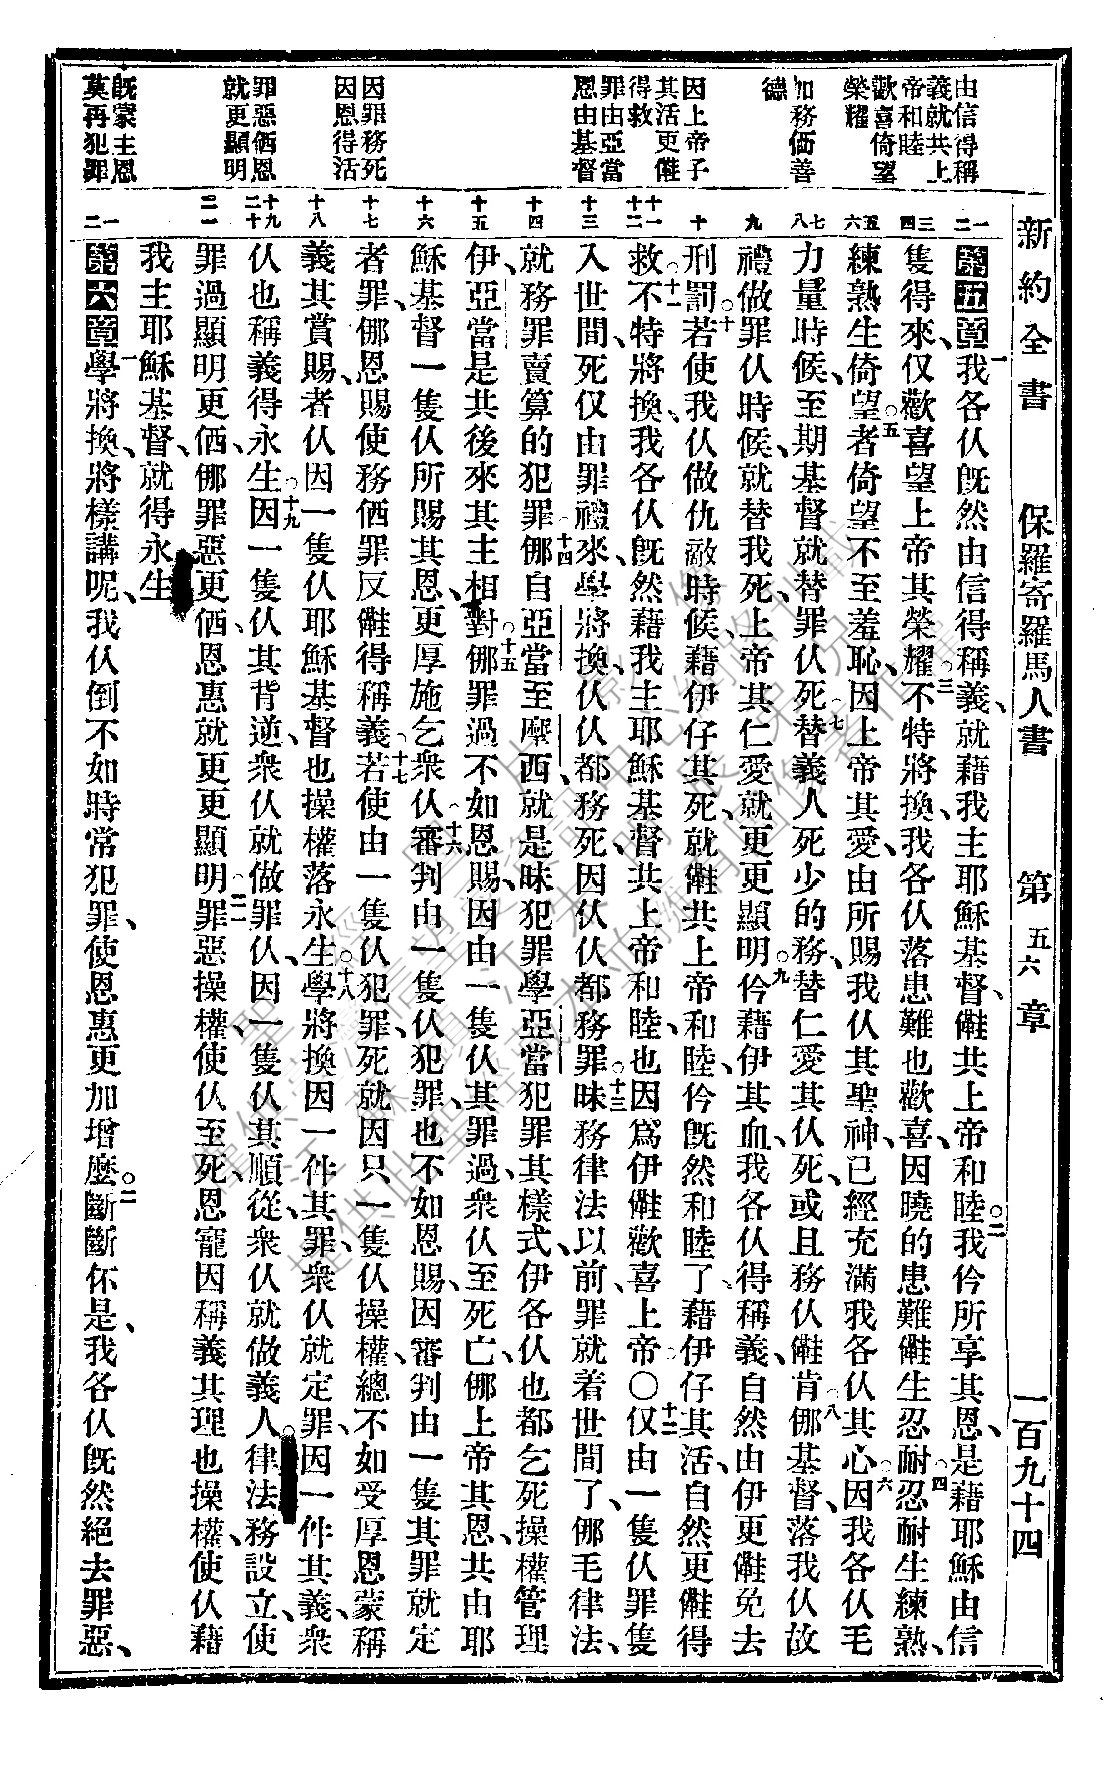 新約全書 保羅寄羅馬人書 第五六章 一百九十四
由信得稱
義就共上
帝和睦
歡喜倚望
榮耀
加務価善
德
因上帝子
其活更傕
得救
罪由亞當
恩由基督
因罪務死
因恩得活
罪惡価恩
就更顯明
既蒙主恩
莫再犯罪
第五章一我各仈既然由信得稱義、就藉我主耶穌基督、傕共上帝和睦、○二我仱所享其恩、是藉耶穌由信
隻得來、仅歡喜望上帝其榮耀、○三不特將換、我各仈落患難也歡喜、因曉的患難傕生忍耐、○四忍耐生練熟、
練熟生倚望、○五者倚望不至羞恥、因上帝其愛、由所賜我仈其聖神、已經充滿我各仈其心、○六因我各仈毛
力量時候、至期基督就替罪仈死、○七替義人死少的務、替仁愛其仈死、或且務仈傕肯、○八倻基督、落我仈故
禮做罪仈時候、就替我死、上帝其仁愛、就更更顯明、○九仱藉伊其血、我各仈得稱義、自然由伊更傕免去
刑罰、○十若使我仈做仇敵時候、藉伊仔其死、就傕共上帝和睦、仱既然和睦了、藉伊仔其活、自然更傕得
救、○十一不特將換、我各仈既然藉我主耶穌基督、共上帝和睦、也因爲伊傕歡喜上帝、○○十二仅由一隻仈罪隻
入世間、死仅由罪禮來、學將換、仈仈都務死、因仈仈都務罪、○十三昧務律法以前、罪就着世間了、倻毛律法、
就務罪賣算的犯罪、○十四倻自亞當至摩西、就是昧犯罪學亞當犯罪其樣式、伊各仈也都乞死操權管理、
伊亞當是共後來其主相對、○十五倻罪過不如恩賜、因由一隻仈其罪過、衆仈至死亡、倻上帝其恩共由耶
穌基督一隻仈所賜其恩、更厚施乞衆仈、○十六審判由一隻仈犯罪、也不如恩賜、因審判由一隻其罪就定
者罪、倻恩賜使務価罪反傕得稱義、○十七若使由一隻仈犯罪、死就因只一隻仈操權、總不如受厚恩蒙稱
義其賞賜者仈、因一隻仈耶穌基督也操權落永生、○十八學將換因一件其罪、衆仈就定罪、因一件其義、衆
仈也稱義得永生、○十九因一隻仈其背逆、衆仈就做罪仈、因一隻仈其順從、衆仈就做義人、○律法務設立、使
罪過顯明更価、倻罪惡更価、恩惠就更更顯明、○二一罪惡操權、使仈至死、恩寵因稱義其理也操權、使仈藉
我主耶穌基督、就得永生
第六章一學將換、將樣講呢、我仈倒不如時常犯罪、使恩惠更加增麽、○二斷斷伓是、我各仈既然絕去罪惡、